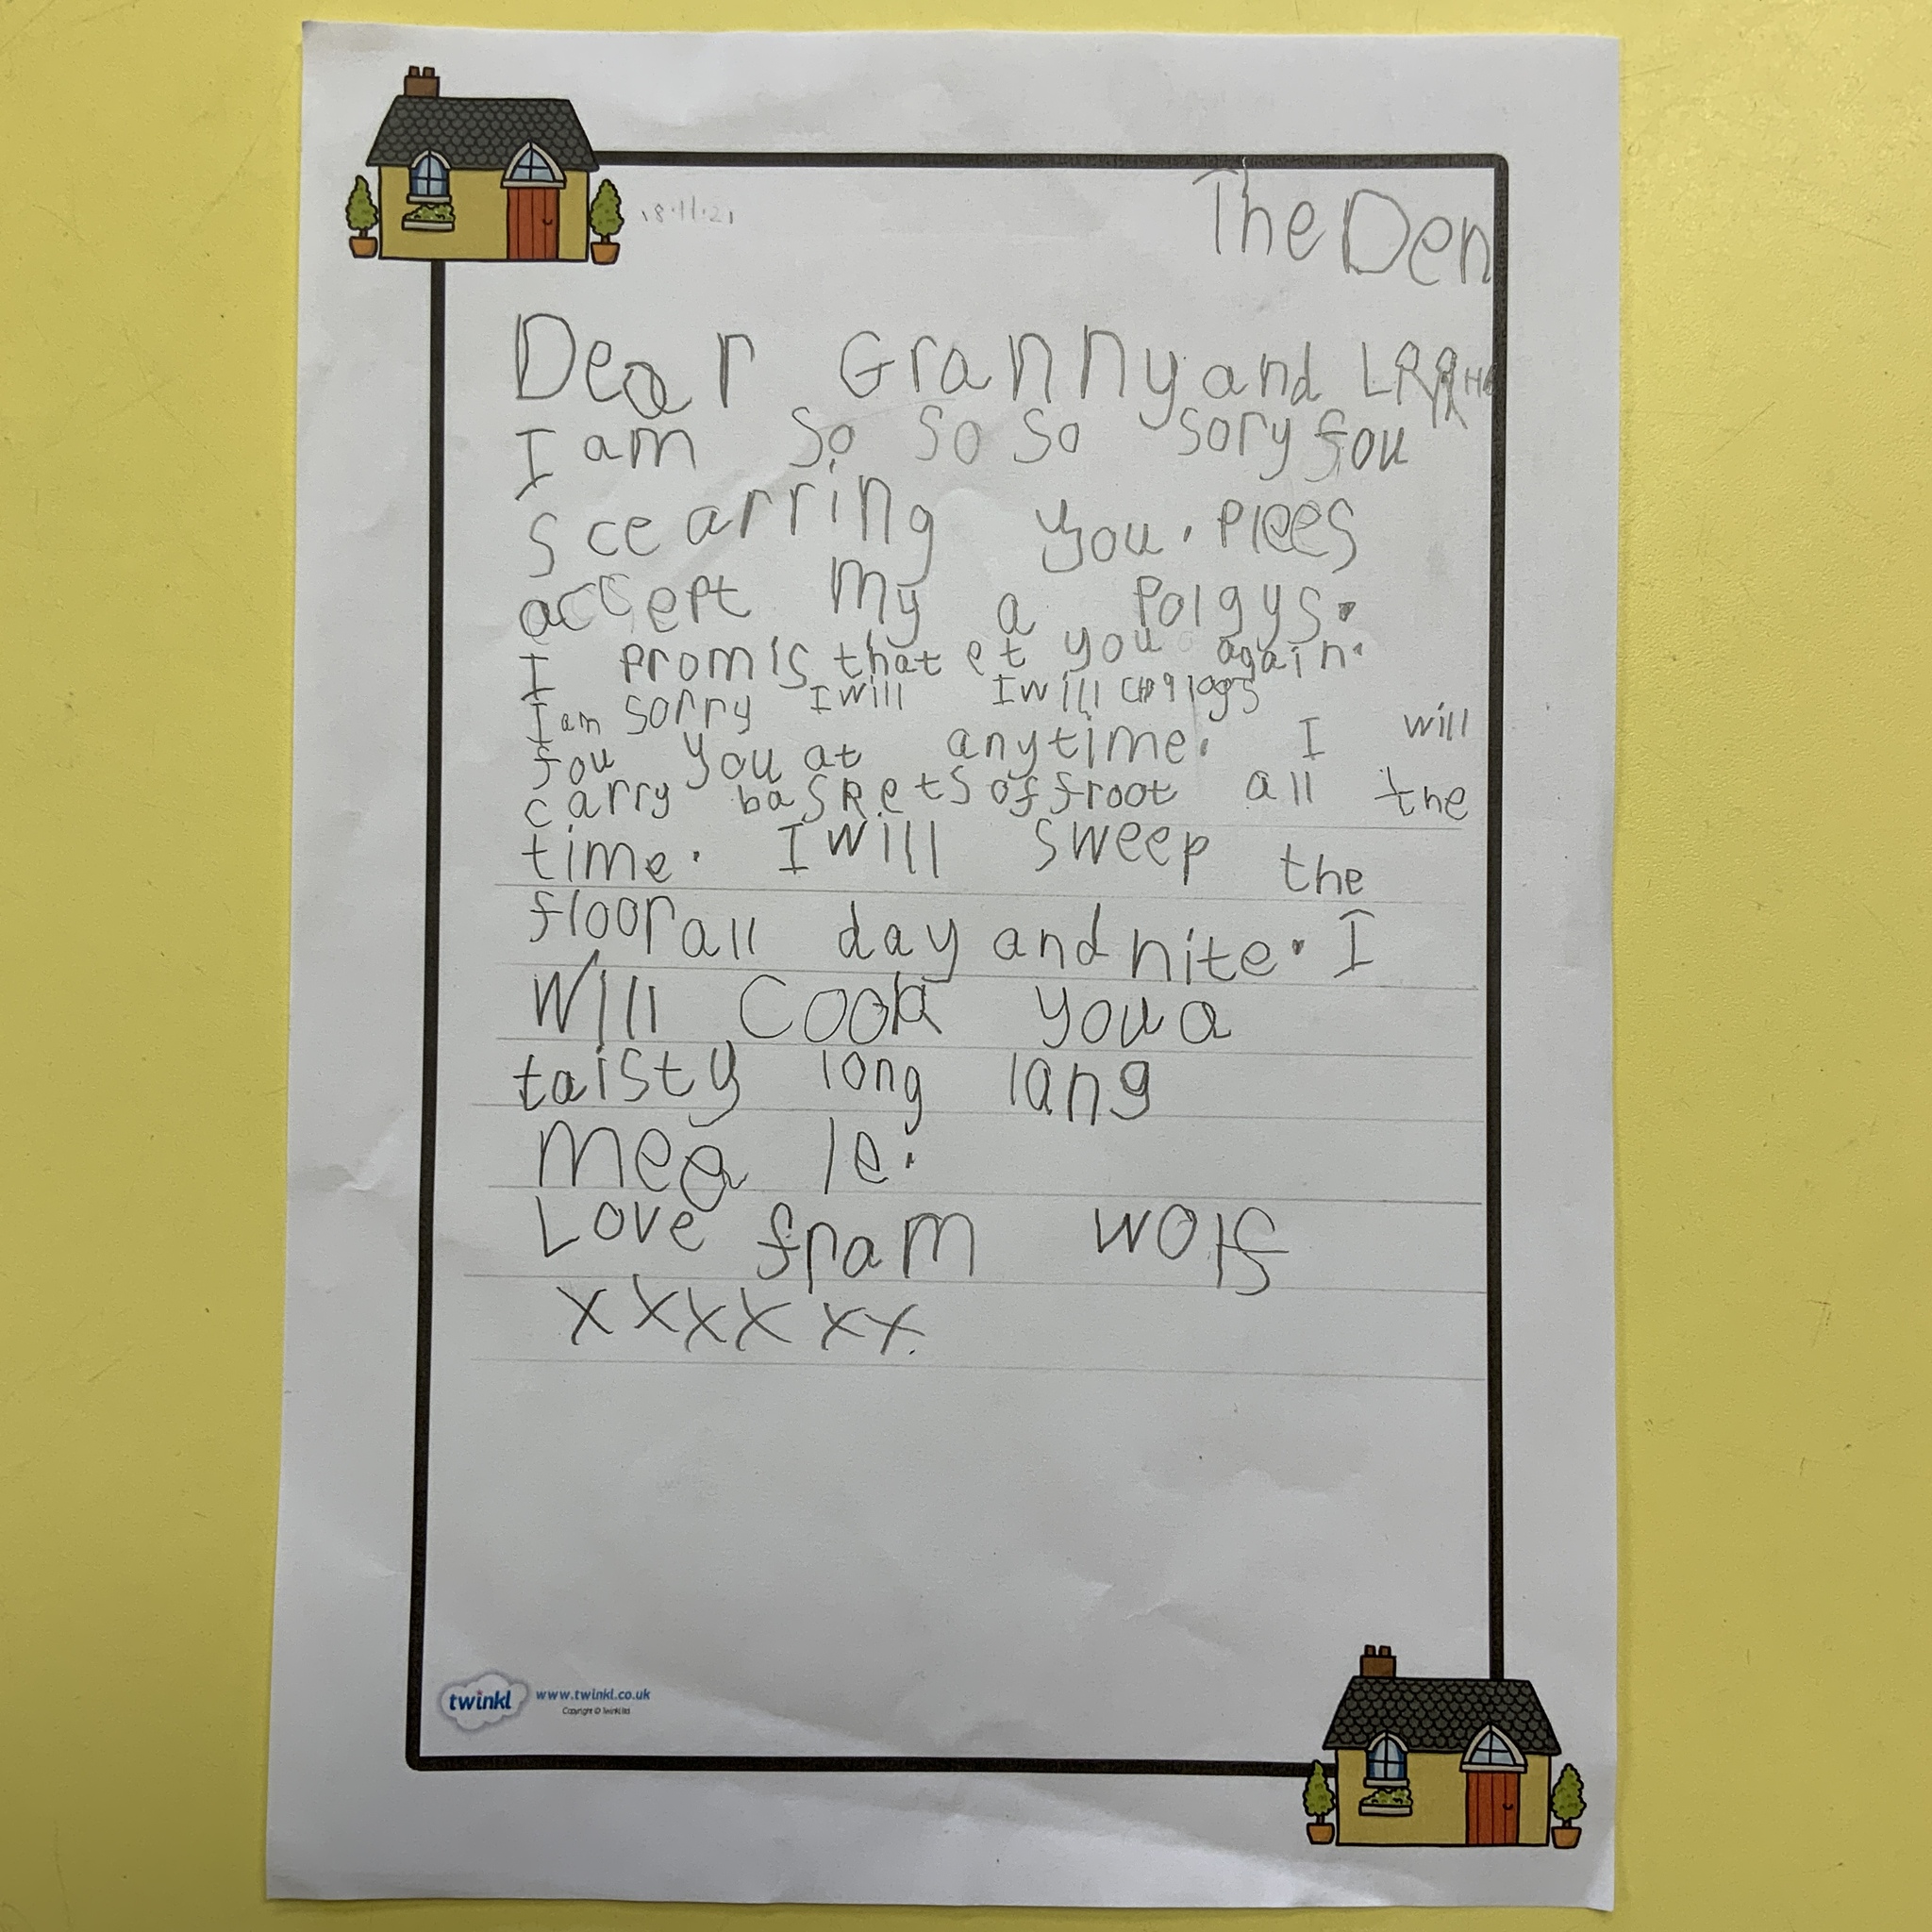 18.11.21
The Den
Dear Granny and LRRH
I am so so so sory fou
scearring you. Plees
accept my a Polgys.
I promis that et you again.
I am sorry I will I will
fou you at anytime. I will
carry baskets of froot all the
time. I will sweep the
floor all day and nite. I
Will Cook you a
taisty long lang
mea le.
Love fram wolf
xxxx xx.
twinkl www.twinkl.co.uk
Copyright © Twinkl ltd